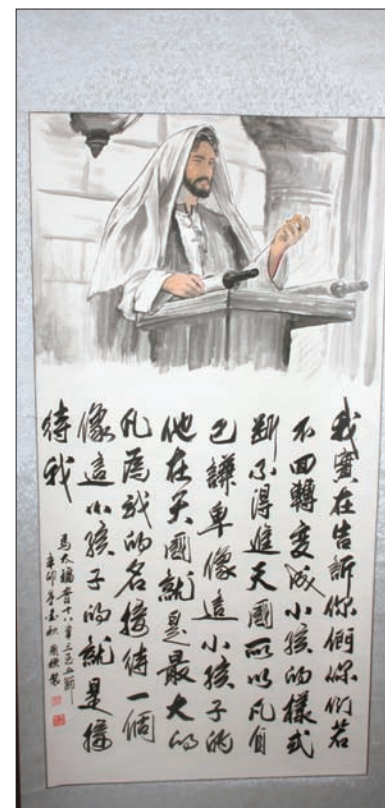 我實在告訴你們你們若
不回轉變成小孩的樣式
斷不得進天國所以凡自
己謙卑像這小孩子的
他在天國就是最大的
凡為我的名接待一個
像這小孩子的就是接
待我
馬太福音十八章三至五節
辛卯年孟秋